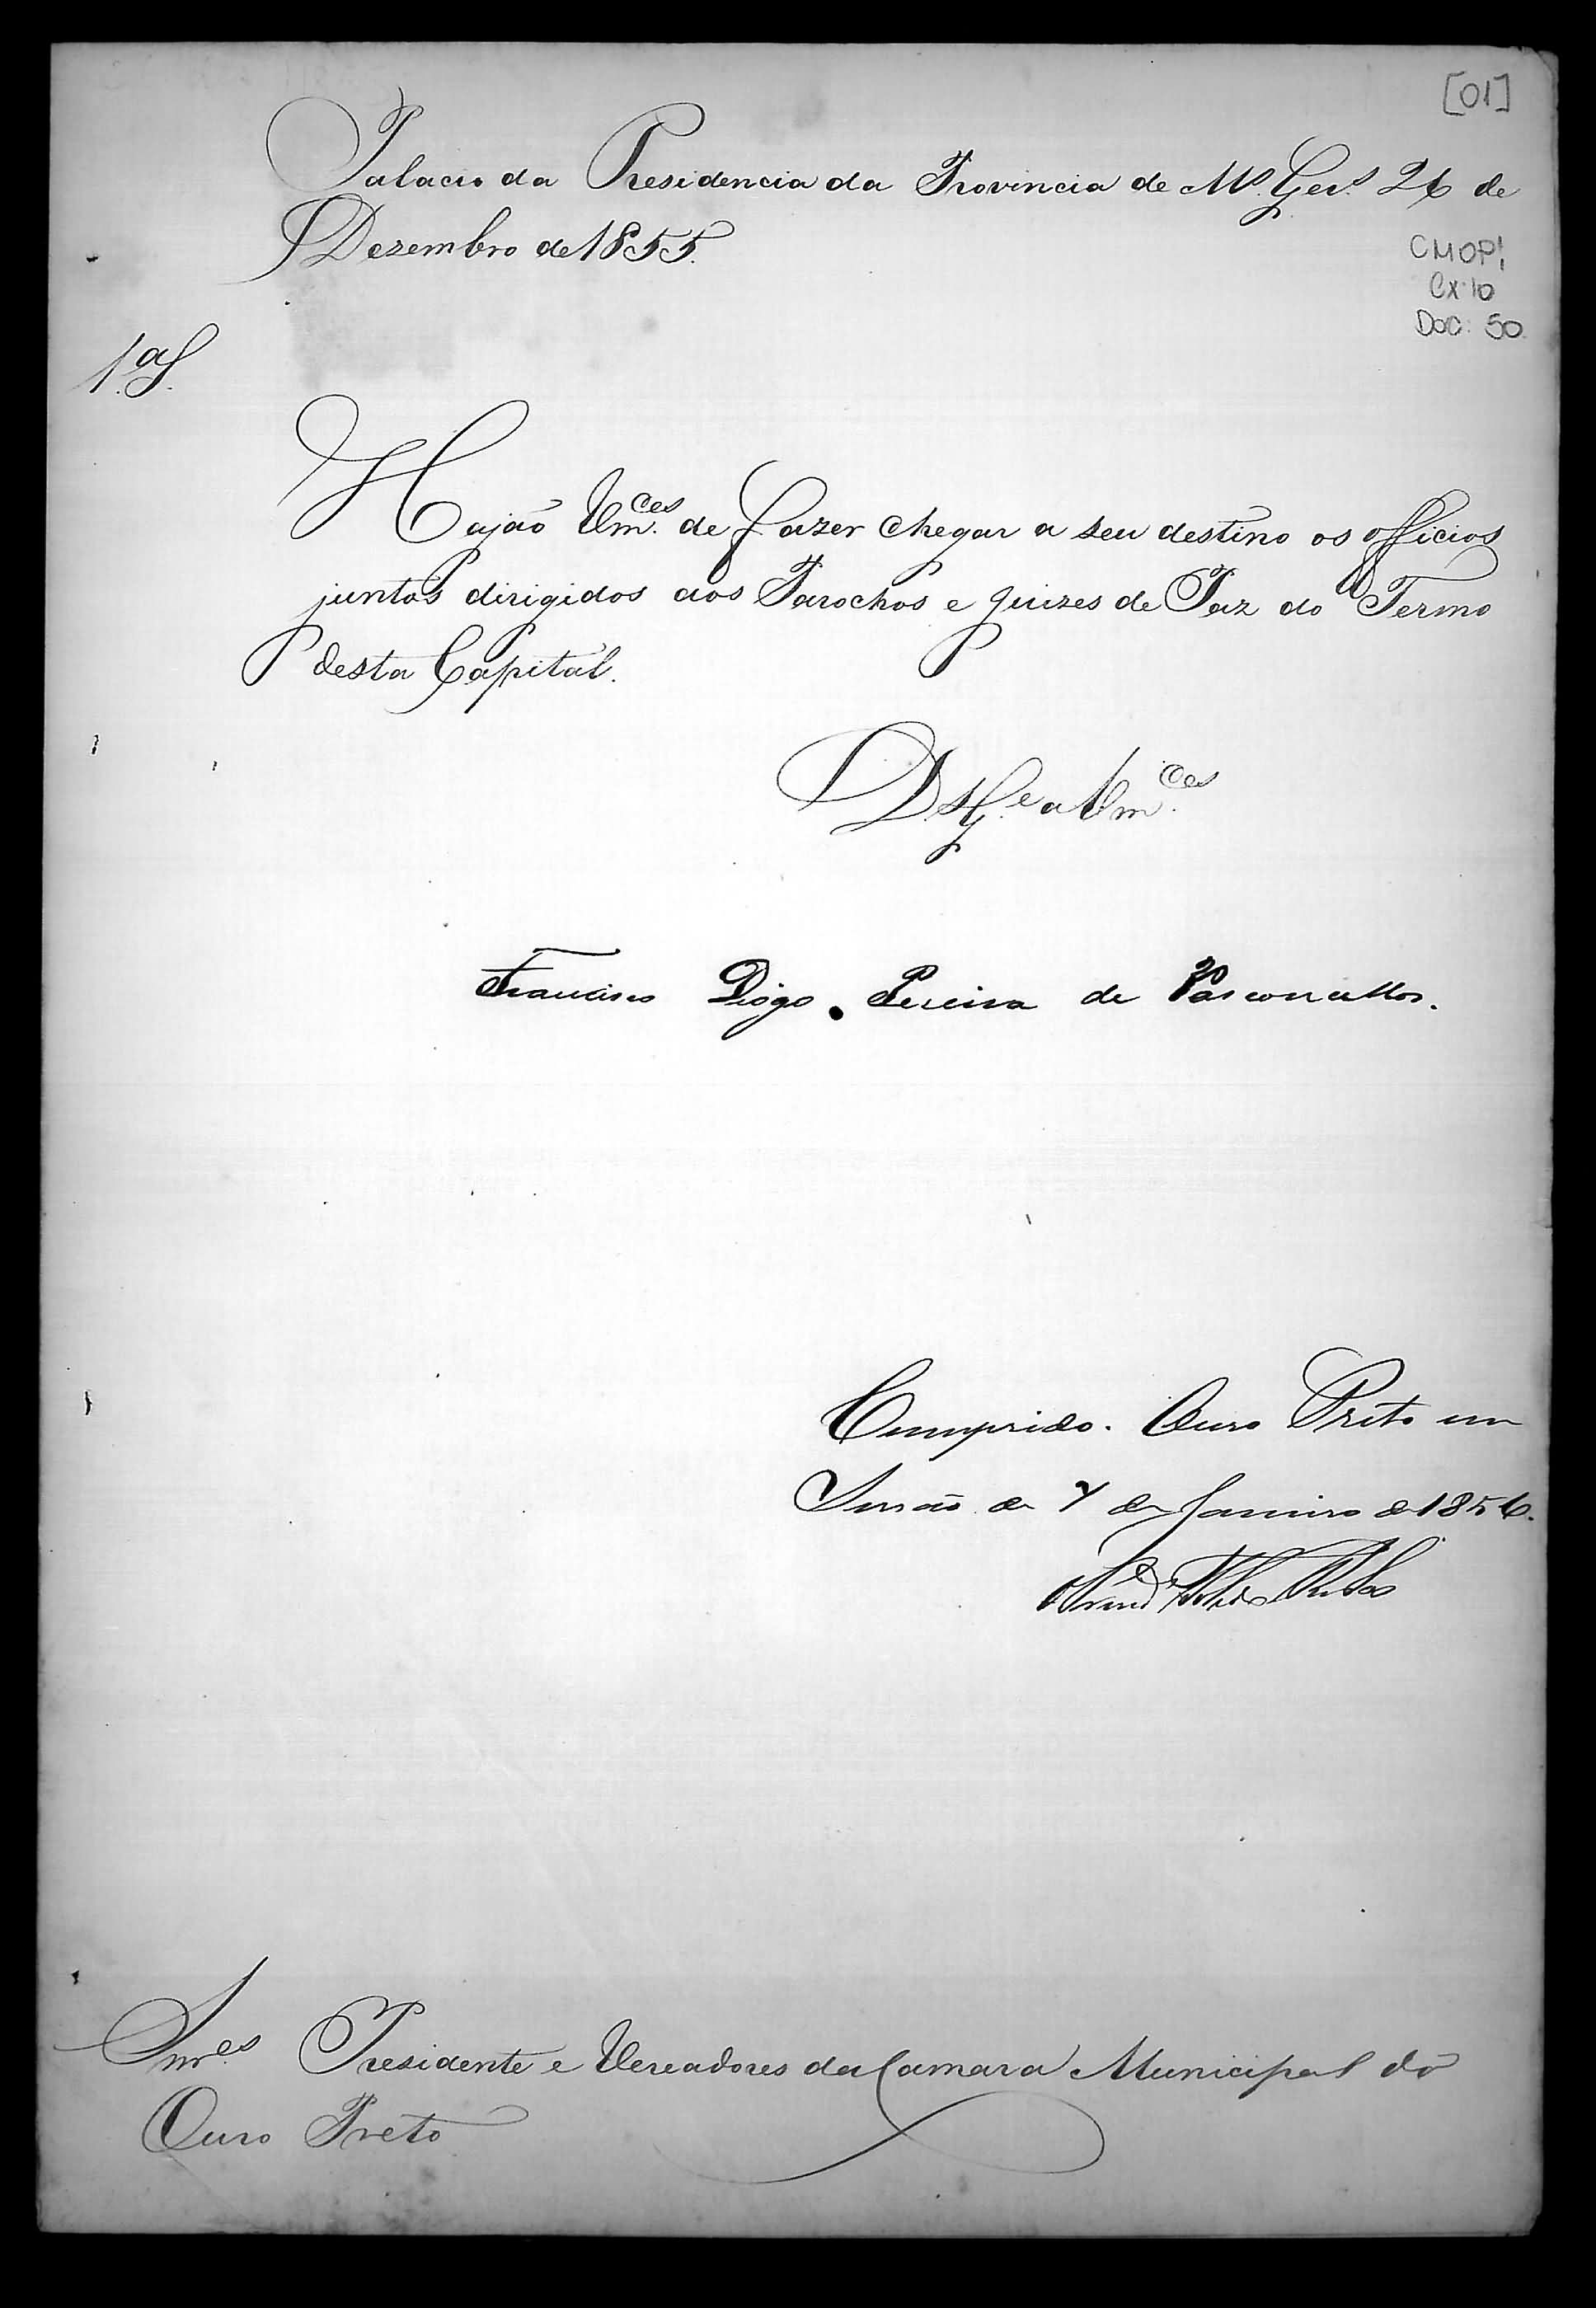 [01]
Palacio da Presidencia da Provincia de Ms. Ger.s 26 de
Dezembro de 1855.
CMOP!
Cx 10
Doc: 50
1.ª S.
Hajão Vm.ces de fazer chegar a seu destino os officios
juntos dirigidos aos Parochos e Juizes de Paz do Termo
desta Capital.
D.s G.e a Vm.ces
Francisco Diogo Pereira de Vasconcellos.
Cumprido. Ouro Preto em
Sessão de 7 de Janeiro de 1856.
Snr.es Presidente e Vereadores da Camara Municipal do
Ouro Preto